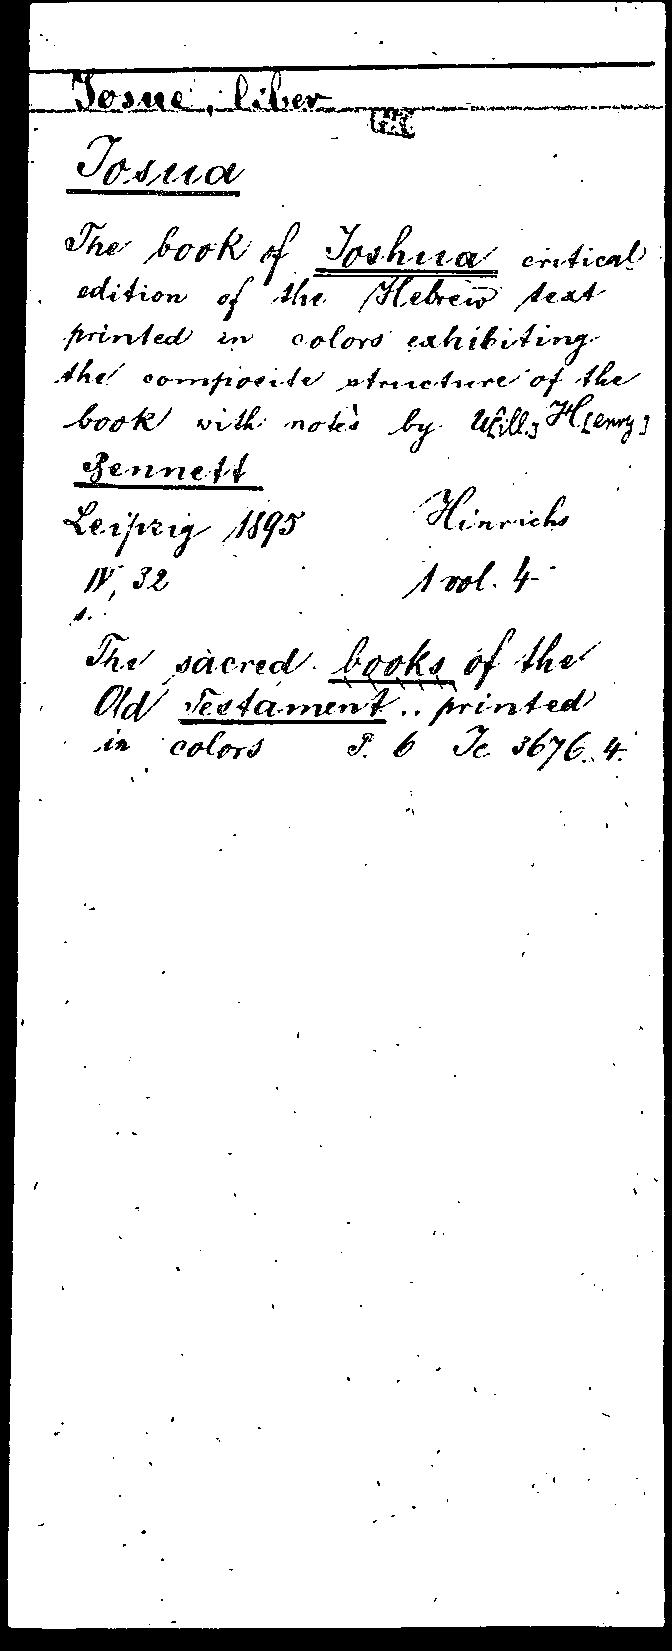 Josue, liber
Josua
The book of Joshua critical
edition of the Hebrew text
printed in colors exhibiting
the composite structure of the
book with notes by W[ill] H[enry]
Bennett
Leipzig 1895 Hinrichs
IV, 32 1 vol. 4
s.
The sacred books of the
Old Testament .. printed
in colors P. 6 Ic 3676. 4.